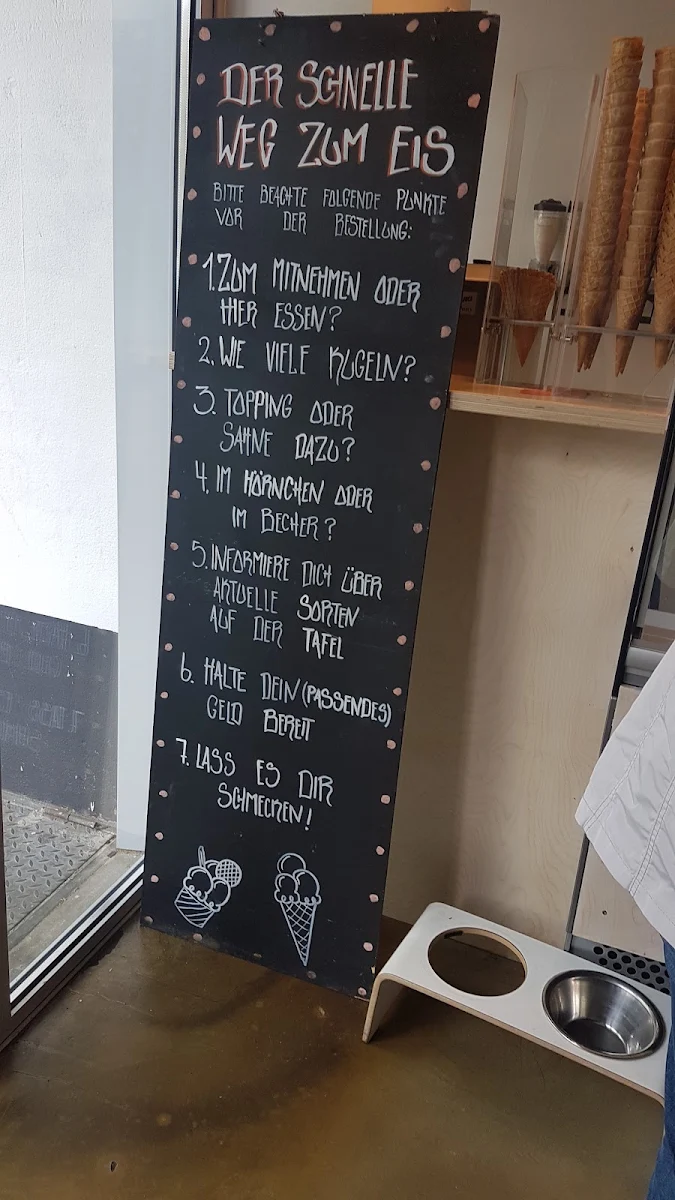 DER SCHNELLE
WEG ZUM EIS
BITTE BEACHTE FOLGENDE PUNKTE
VOR DER BESTELLUNG:
1. ZUM MITNEHMEN ODER
HIER ESSEN?
2. WIE VIELE KUGELN?
3. TOPPING ODER
SAHNE DAZU?
4. IM HÖRNCHEN ODER
IM BECHER?
5. INFORMIERE DICH ÜBER
AKTUELLE SORTEN
AUF DER TAFEL
6. HALTE DEIN (PASSENDES)
GELD BEREIT
7. LASS ES DIR
SCHMECKEN!